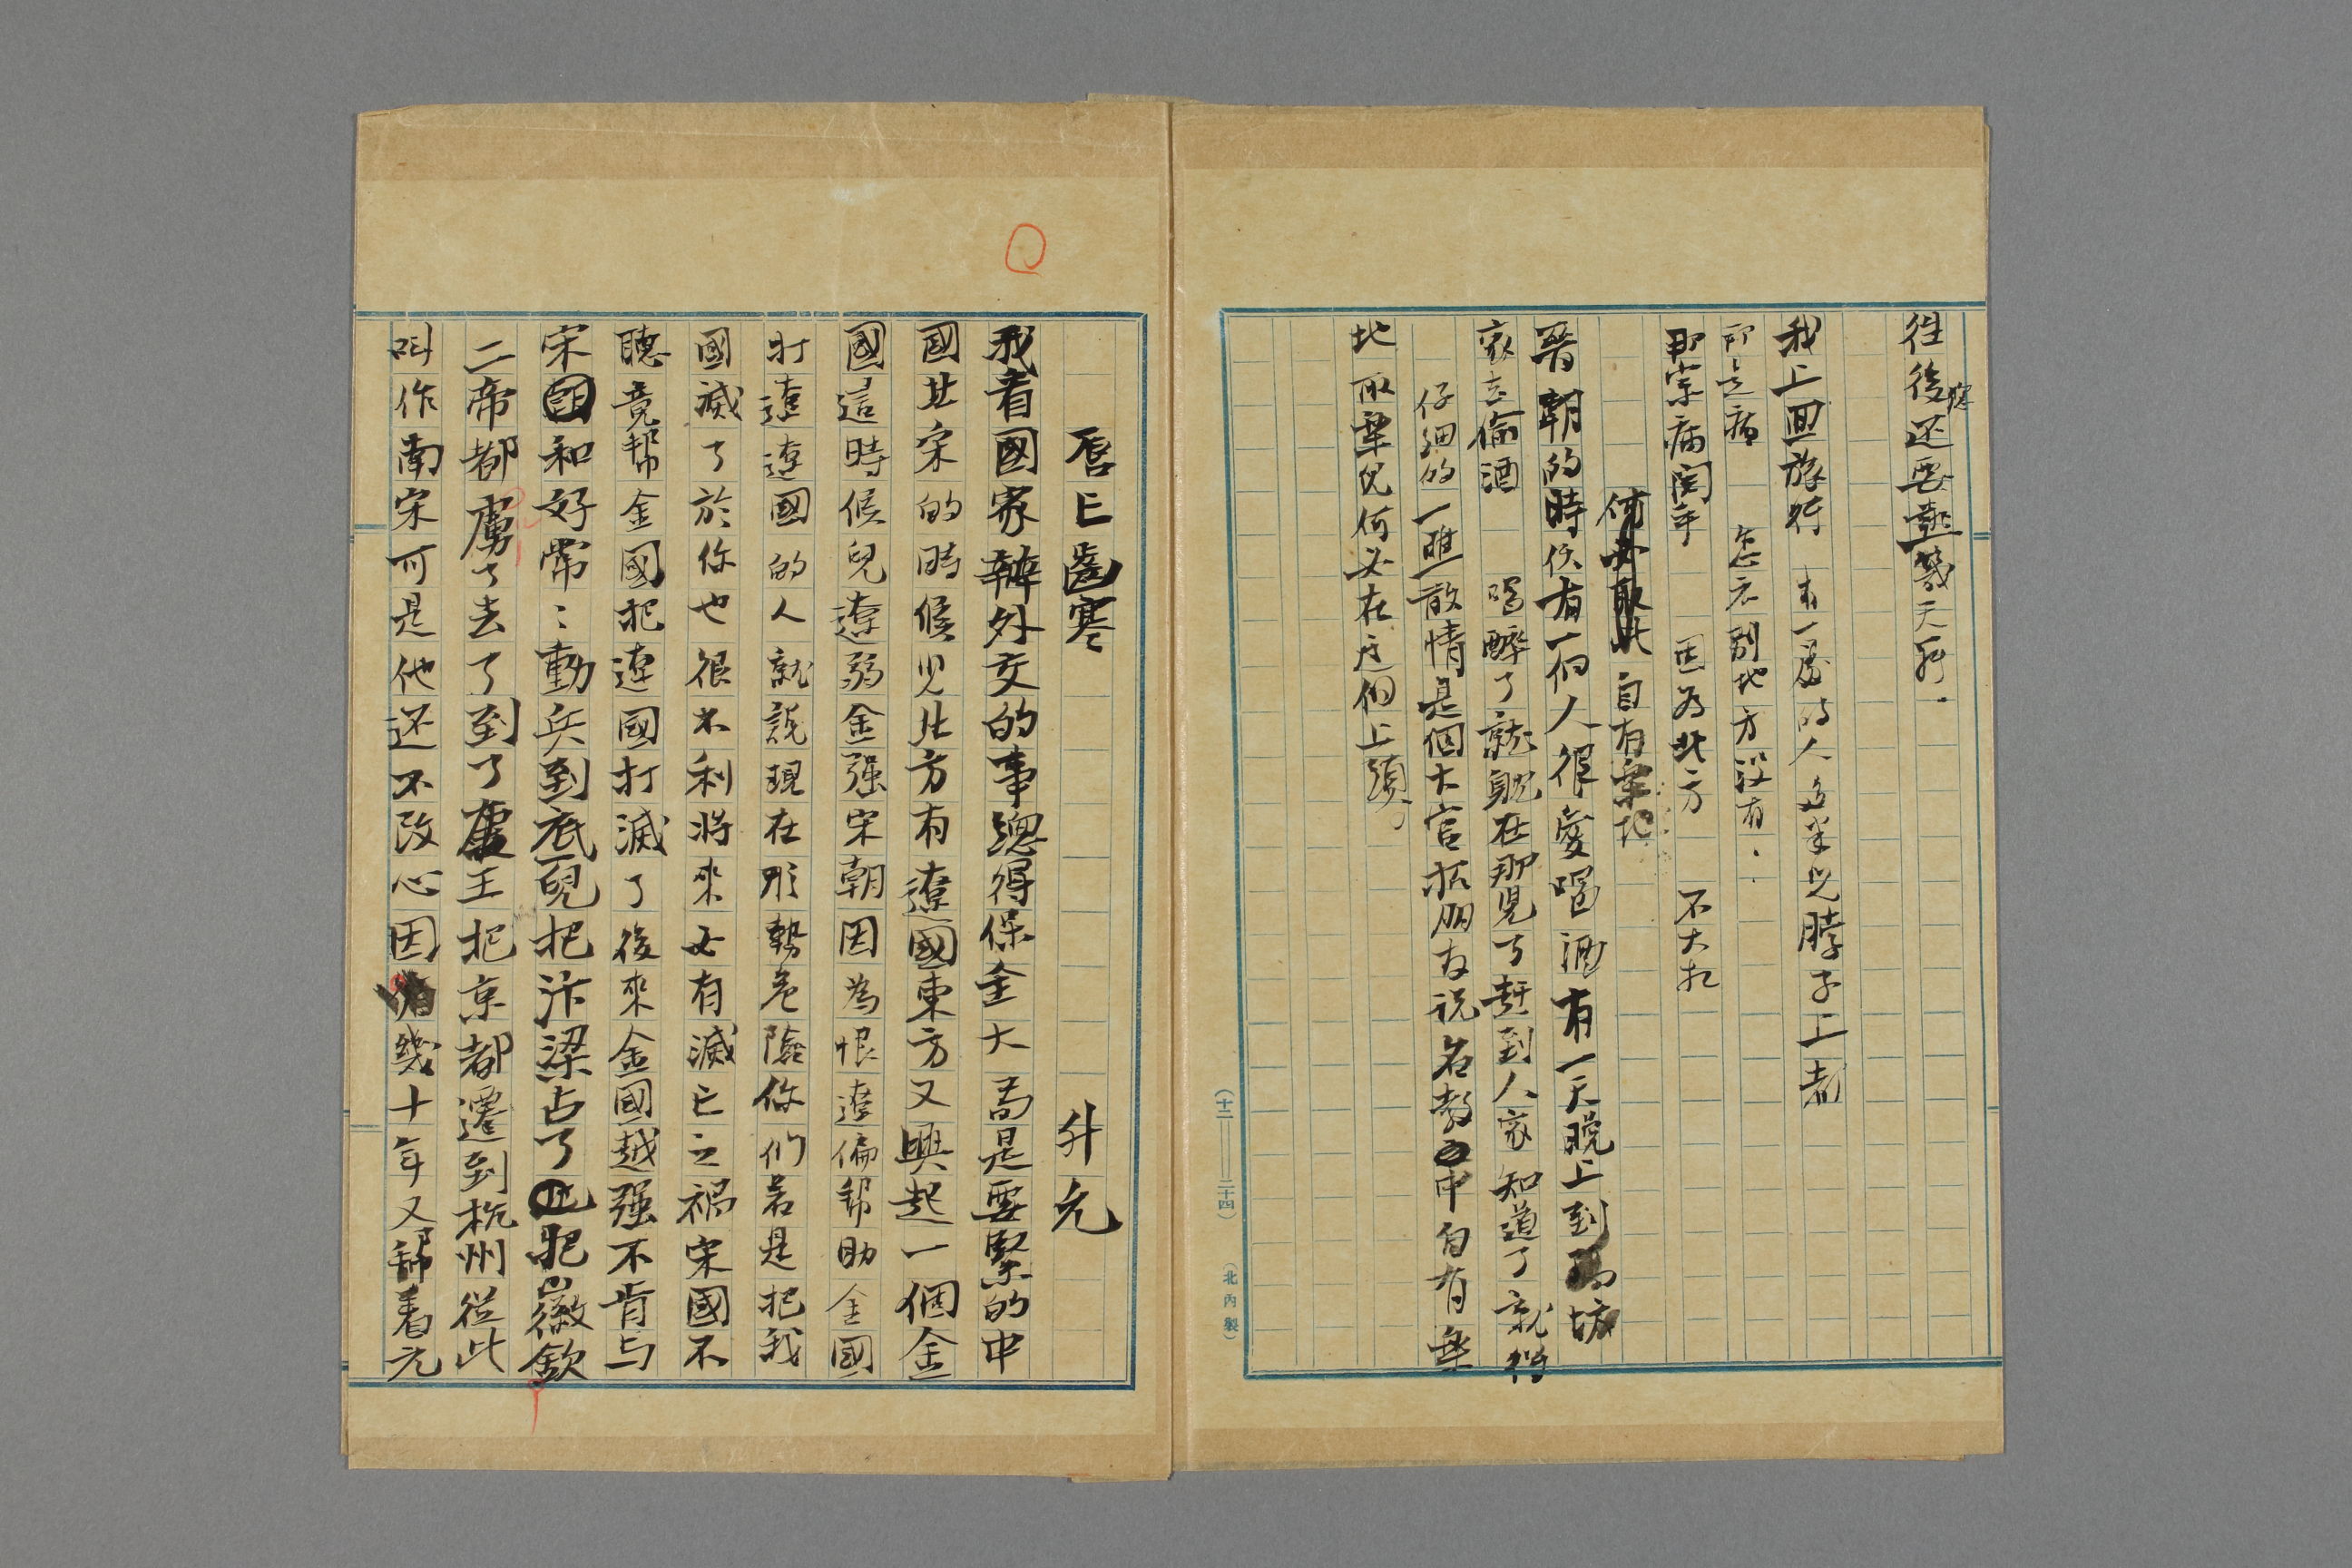 往後還要熱幾天形．
我上回旅行 有一處的人多半兒脖子上都
那是病 怎么別地方沒有．．
那宗病関乎 因为北方 不大扎
何必取此 自有樂地
晋朝的時候有一個人很愛喝酒有一天晚上到 坊
家去偷酒 喝醉了就躺在那児了赶到人家知道了就
仔細的一瞧敢情是個大官 朋友说名教中自有樂
地 何必在这個上頭、
（十二——二十四） （北內製）
唇亡齒寒 升允
我看國家辦外交的事總得保全大局是要緊的中
國某宋的時候児北方有遼國東方又興起一個金
國這時候兒遼弱金强宋朝因為恨遼偏幫助金國
打遼遼國的人就說現在形勢危險你們若是把我
國滅了於你也很不利將來必有滅亡之禍宋國不
聽竟幫金國把遼國打滅了後來金國越强不肯与
宋國和好常：動兵到底兒把汴梁占了 把徽欽
二帝都虜了去了到了 王把京都遷到杭州從此
叫作南宋可是他还不改心因 幾十年又幫着元